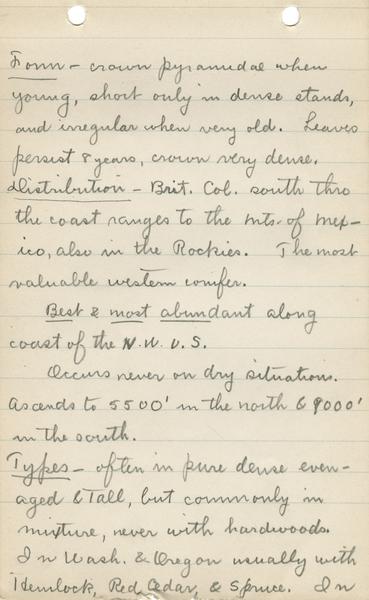 Form - crown pyramidae when
young, short only in dense stands,
and irregular when very old. Leaves
persist 8 years, crown very dense.
Distribution - Brit. Col. south thro
the coast ranges to the Mts. of Mex-
ico, also in the Rockies. The most
valuable western conifer.
Best & most abundant along
coast of the N.W. U.S.
Occurs never on dry situations.
Ascends to 5500' in the north & 9000'
in the south.
Types - often in pure dense even-
aged & Tall, but commonly in
mixture, never with hardwoods.
In Wash. & Oregon usually with
Hemlock, Red Cedar, & Spruce. In